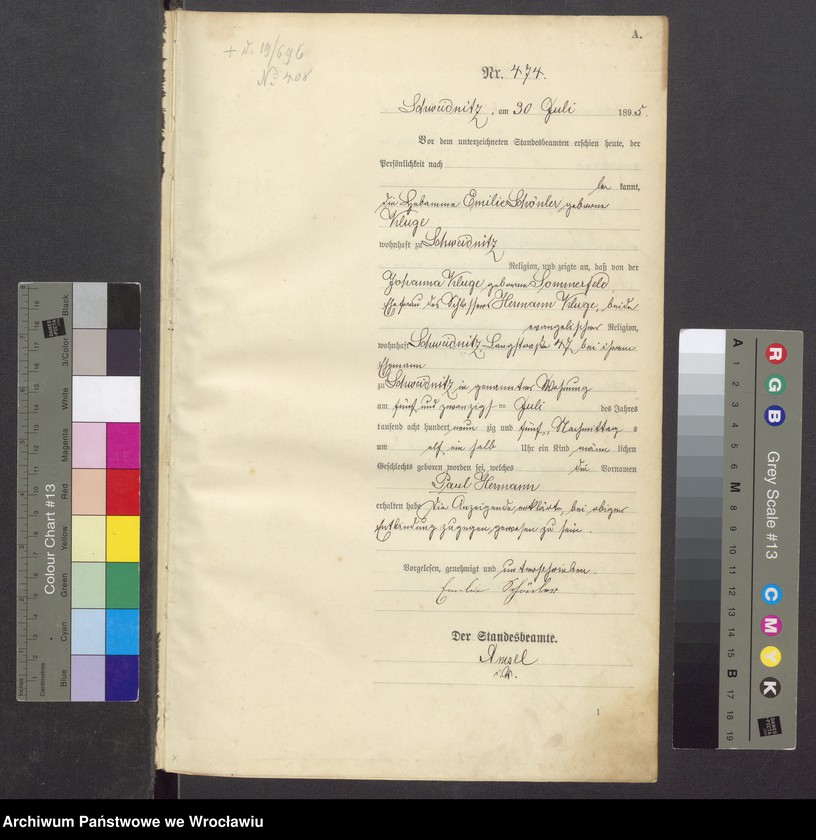 A.
+ N. 19/696
No 408
Nr. 474.
Schweidnitz, am 30 Juli 1895.
Vor dem unterzeichneten Standesbeamten erschien heute, der
Persönlichkeit nach
be kannt,
die Hebamme Emilie Schönler geborne
Kluge
wohnhaft zu Schweidnitz
Religion, und zeigte an, daß von der
Johanna Kluge geborne Sommerfeld
Ehefrau des Schlossers Hermann Kluge, beide
evangelischer Religion,
wohnhaft Schweidnitz, Langstraße 47, bei ihrem
Ehemann
zu Schweidnitz in genannter Wohnung
am fünf und zwanzigsten Juli des Jahres
tausend acht hundert neun zig und fünf, Nachmittag s
um elf ein halb Uhr ein Kind männ lichen
Geschlechts geboren worden sei, welches die Vornamen
Paul Hermann
erhalten habe. Die Anzeigende erklärte, bei obiger
Entbindung zugegen gewesen zu sein.
Vorgelesen, genehmigt und unterschrieben.
Emilie
Der Standesbeamte.
1
Colour Chart #13
Black
3/Color
White
Magenta
Red
Yellow
Green
Cyan
Blue
Inches
Centimetres
Grey Scale #13
R
G
B
C
M
Y
K
A 1 2 3 4 5 6 M 8 9 10 11 12 13 14 15 B 17 18 19
Archiwum Państwowe we Wrocławiu